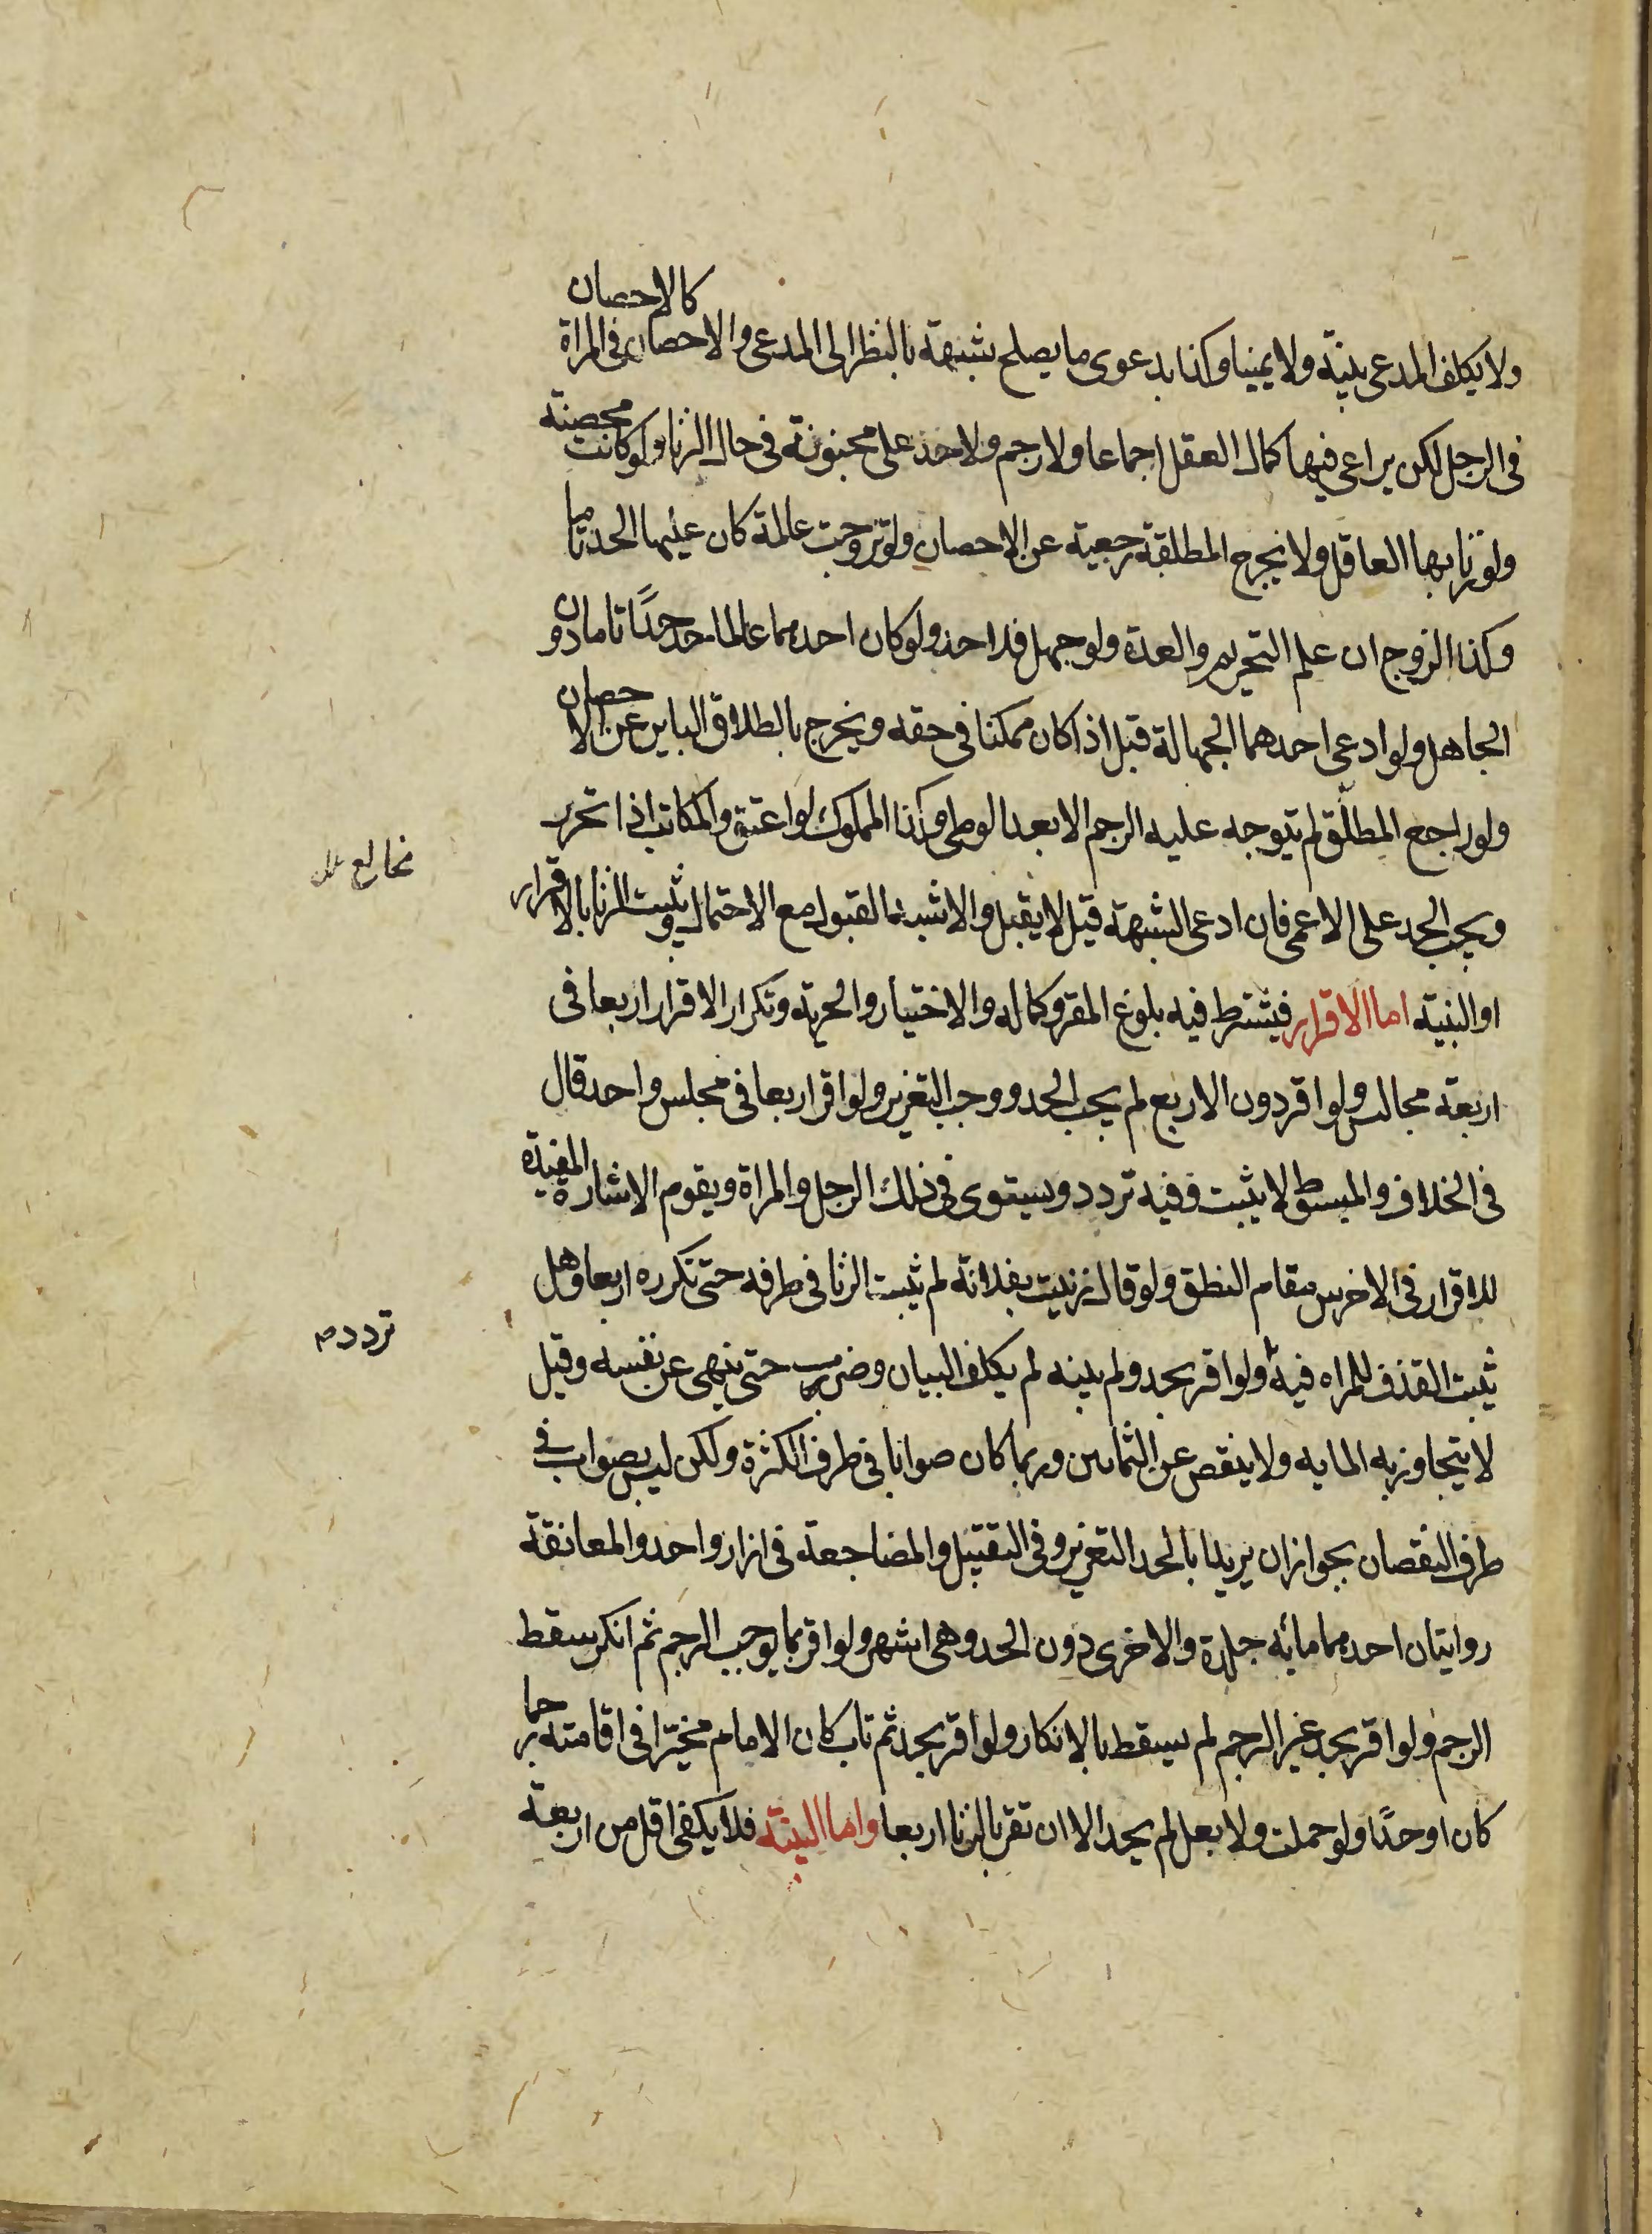 ولا يكلف المدعى بينة ولا يمينا وكذا بدعوى ما يصلح شبهة بالنظر الى المدعى والاحصان فى المراة كالاحصان
فى الرجل لكن يراعى فيها كمال العقل اجماعا ولا رجم ولا حد على مجنونة فى حال الزنا ولو كانت محصنة
ولو زنا بها العاقل ولا تخرج المطلقة رجعية عن الاحصان ولو تزوجت عالمة كان عليها الحد تاما
وكذا الزوج ان علم التحريم والعدة ولو جهل فلا حد ولو كان احدهما عالما حد حدًا تاما دون
الجاهل ولو ادعى احدهما الجهالة قبل اذا كان ممكنا فى حقه ويخرج بالطلاق الباين عن الاحصان
ولو راجع المطلّق لم يتوجه عليه الرجم الا بعد الوطى وكذا المملوك لو اعتق والمكاتب اذا تحرر
ويجب الحد على الاعمى فان ادعى الشبهة قيل لا يقبل والاشبه القبول مع الاحتمال ويثبت الزنا بالاقرار
او البينة اما الاقرار فيشترط فيه بلوغ المقر وكماله والاختيار والحرية وتكرار الاقرار اربعا فى
اربعة مجالس ولو اقر دون الاربع لم يجب الحد ووجب التعزير ولو اقر اربعا فى مجلس واحد قال
فى الخلاف والمبسوط لا يثبت وفيه تردد ويستوى فى ذلك الرجل والمراة ويقوم الاشارة المفيدة
للاقرار فى الاخرس مقام النطق ولو قال زنيت بفلانة لم يثبت الزنا فى طرفه حتى تكرره اربعا وهل
يثبت القذف للمراه فيه ولو اقر بحد ولم يبينه لم يكلف البيان وضرب حتى ينهى عن نفسه وقيل
لا يتجاوز به المايه ولا ينقص عن الثمانين وربما كان صوابا فى طرف الكثرة ولكن ليس بصواب فى
طرف النقصان بجواز ان يريد بالحد التعزير وفى التقبيل والمضاجعة فى ازار واحد والمعانقة
روايتان احدهما مائه جلدة والاخرى دون الحد وهى اشهر ولو اقر بما يوجب الرجم ثم انكر سقط
الرجم ولو اقر بحد غير الرجم لم يسقط بالانكار ولو اقر بحد ثم تاب كان الامام مخيّرا فى اقامته رجما
كان او حدًا ولو حملت ولا بعل لم يحد الا ان تقر بالزنا اربعا واما البينة فلا يكفى اقل من اربعة
تردد م